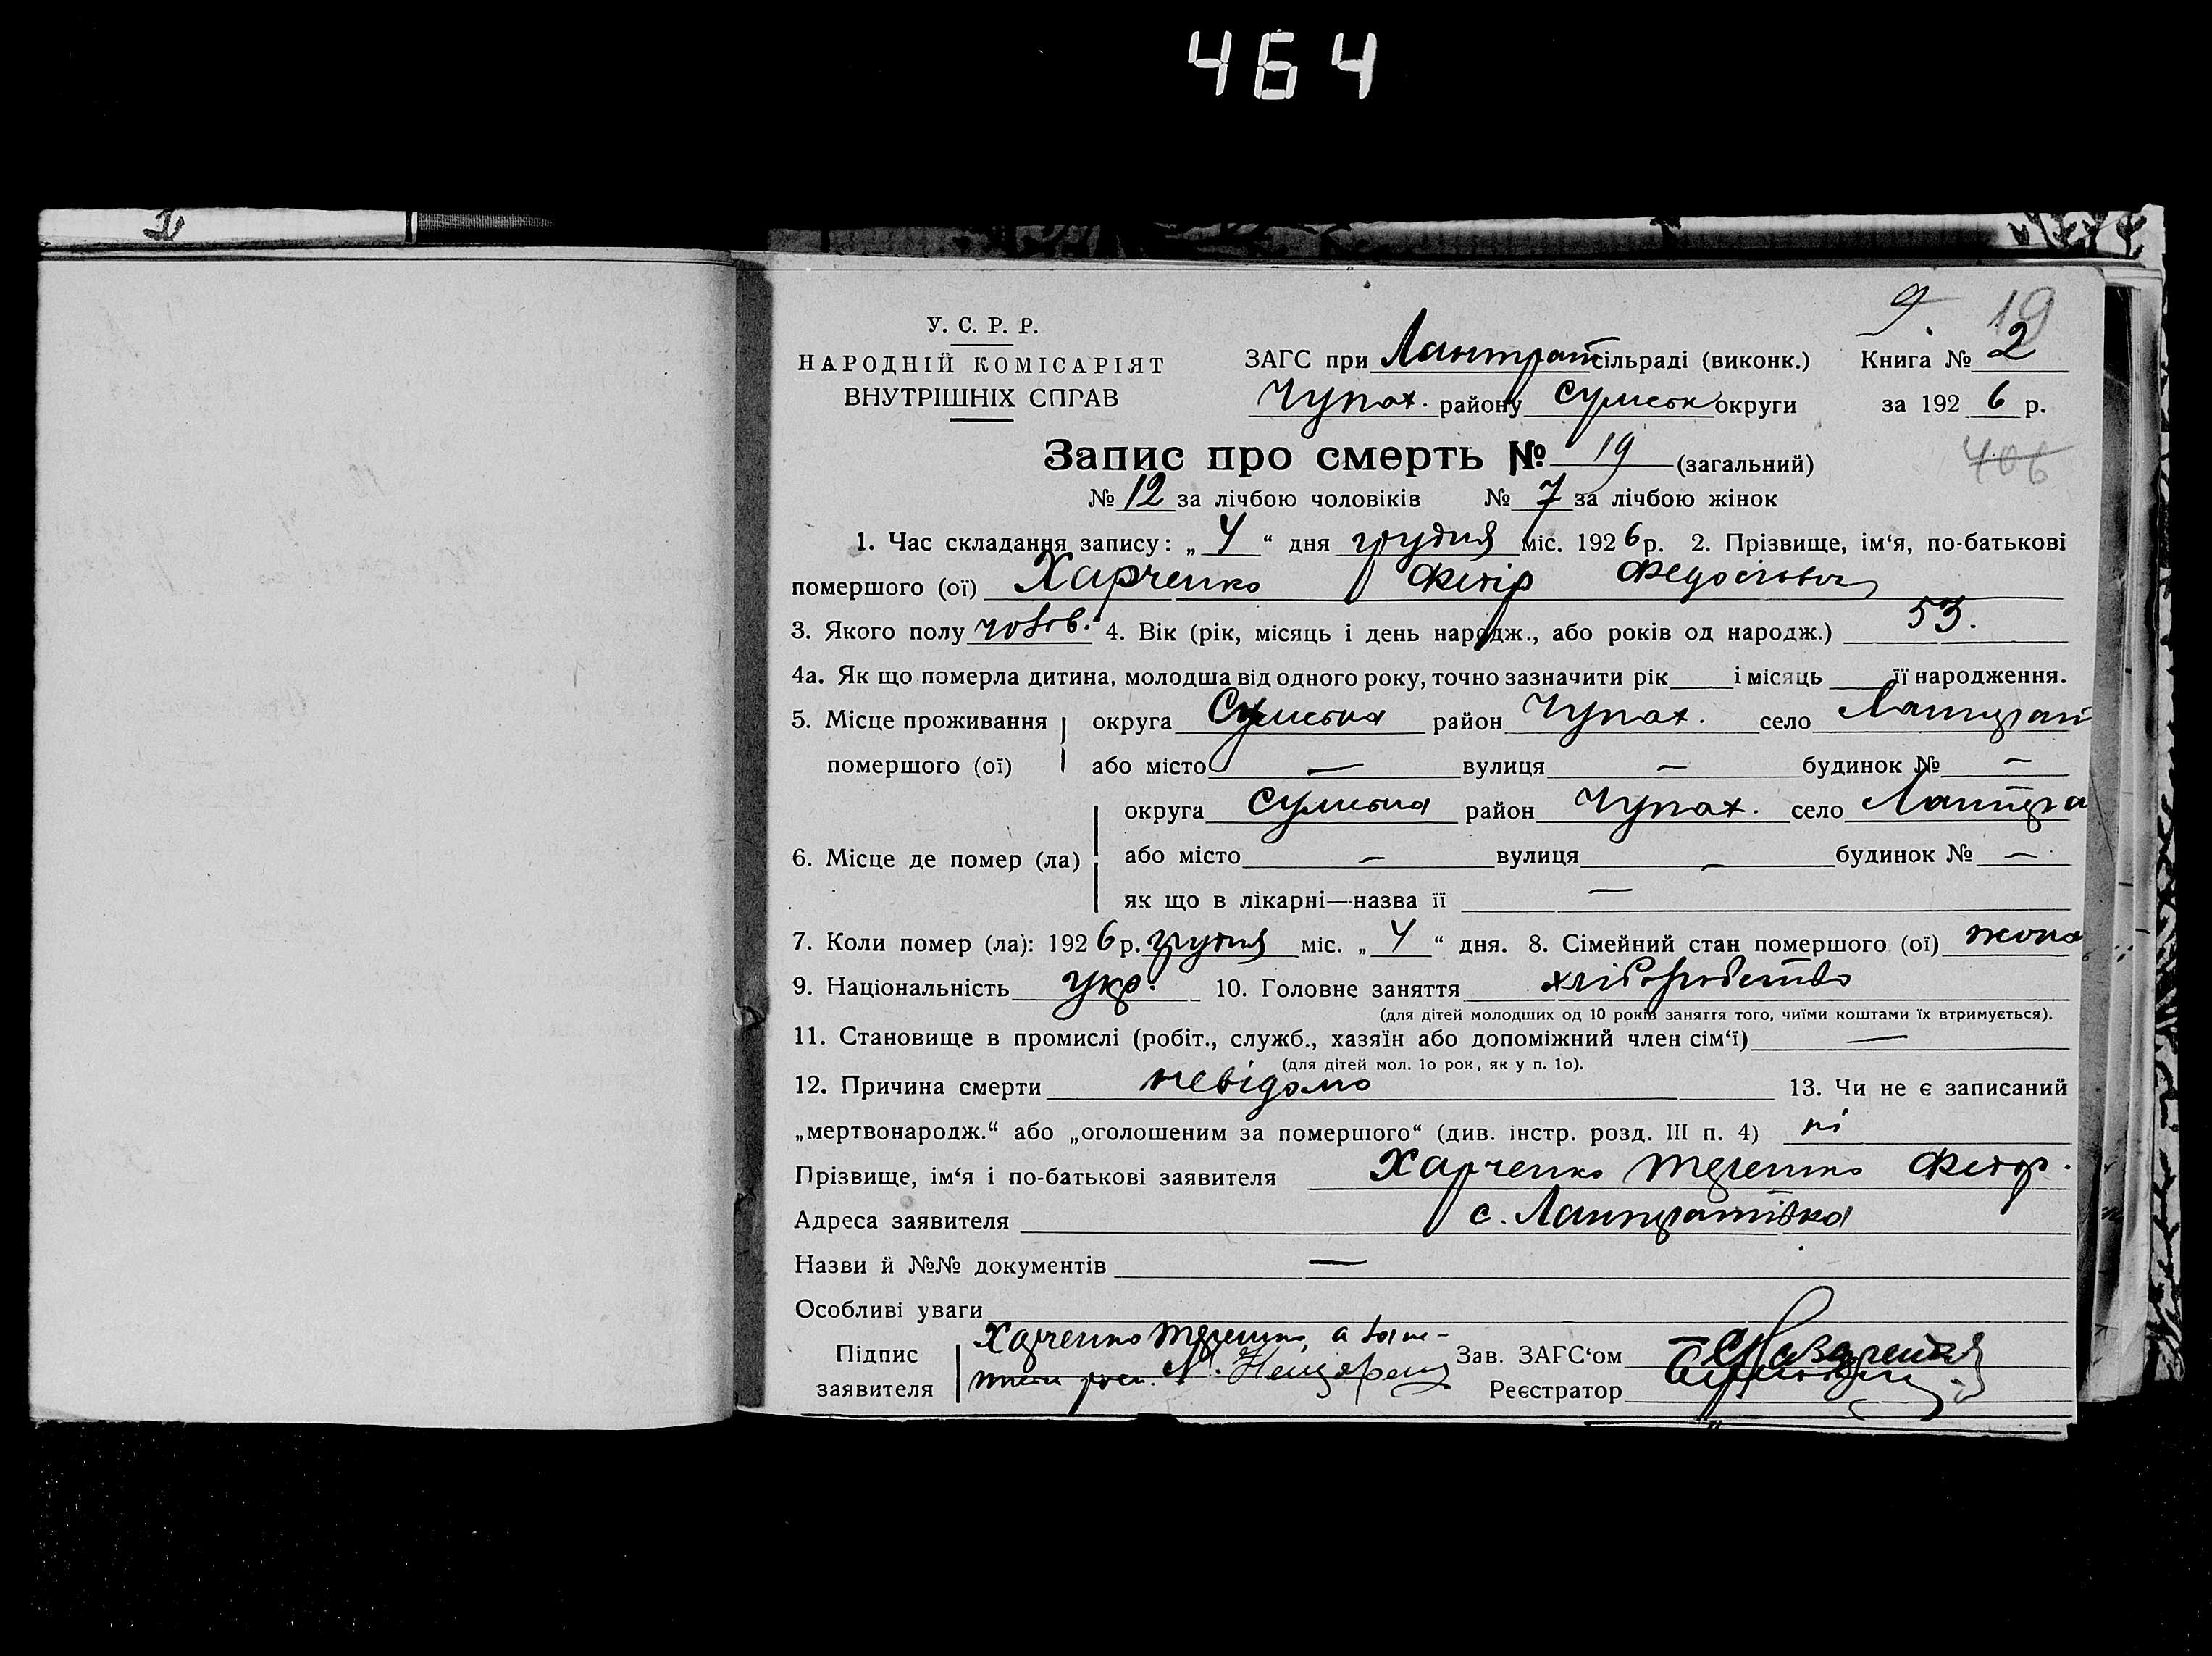 464
У. С. Р. Р.
НАРОДНІЙ КОМІСАРІЯТ
ВНУТРІШНІХ СПРАВ
9. 19
ЗАГС при Лантрат сільраді (виконк.) Книга № 2
Чупах. району Сумськ округи за 192 6 р.
Запис про смерть № 19 (загальний)
406
№ 12 за лічбою чоловіків № 7 за лічбою жінок
1. Час складання запису: „ 4 “ дня грудня міс. 192 6 р. 2. Прізвище, ім‘я, по-батькові
помершого (ої) Харченко Федір Федосієвич
3. Якого полу чолов. 4. Вік (рік, місяць і день народж., або років од народж.) 53.
4а. Як що померла дитина, молодша від одного року, точно зазначити рік і місяць її народження.
5. Місце проживання округа Сумська район Чупах. село Лантрат
помершого (ої) або місто — вулиця — будинок № —
округа Сумська район Чупах. село Лантра
6. Місце де помер (ла) або місто — вулиця — будинок № —
як що в лікарні—назва її —
7. Коли помер (ла): 192 6 р. грудня міс. „ 4 “ дня. 8. Сімейний стан помершого (ої)
9. Національність укр. 10. Головне заняття хліборобство
(для дітей молодших од 10 років заняття того, чиїми коштами їх втримується).
11. Становище в промислі (робіт., служб., хазяїн або допоміжний член сім‘ї) —
(для дітей мол. 1о рок, як у п. 1о).
12. Причина смерти невідомо 13. Чи не є записаний
„мертвонародж.“ або „оголошеним за помершого“ (див. інстр. розд. III п. 4) ні
Прізвище, ім‘я і по-батькові заявителя Харченко Терешко Федор.
Адреса заявителя с. Лантратівка
Назви й №№ документів —
Особливі уваги
Підпис Харченко Терешко, а Зав. ЗАГС‘ом
заявителя Реєстратор